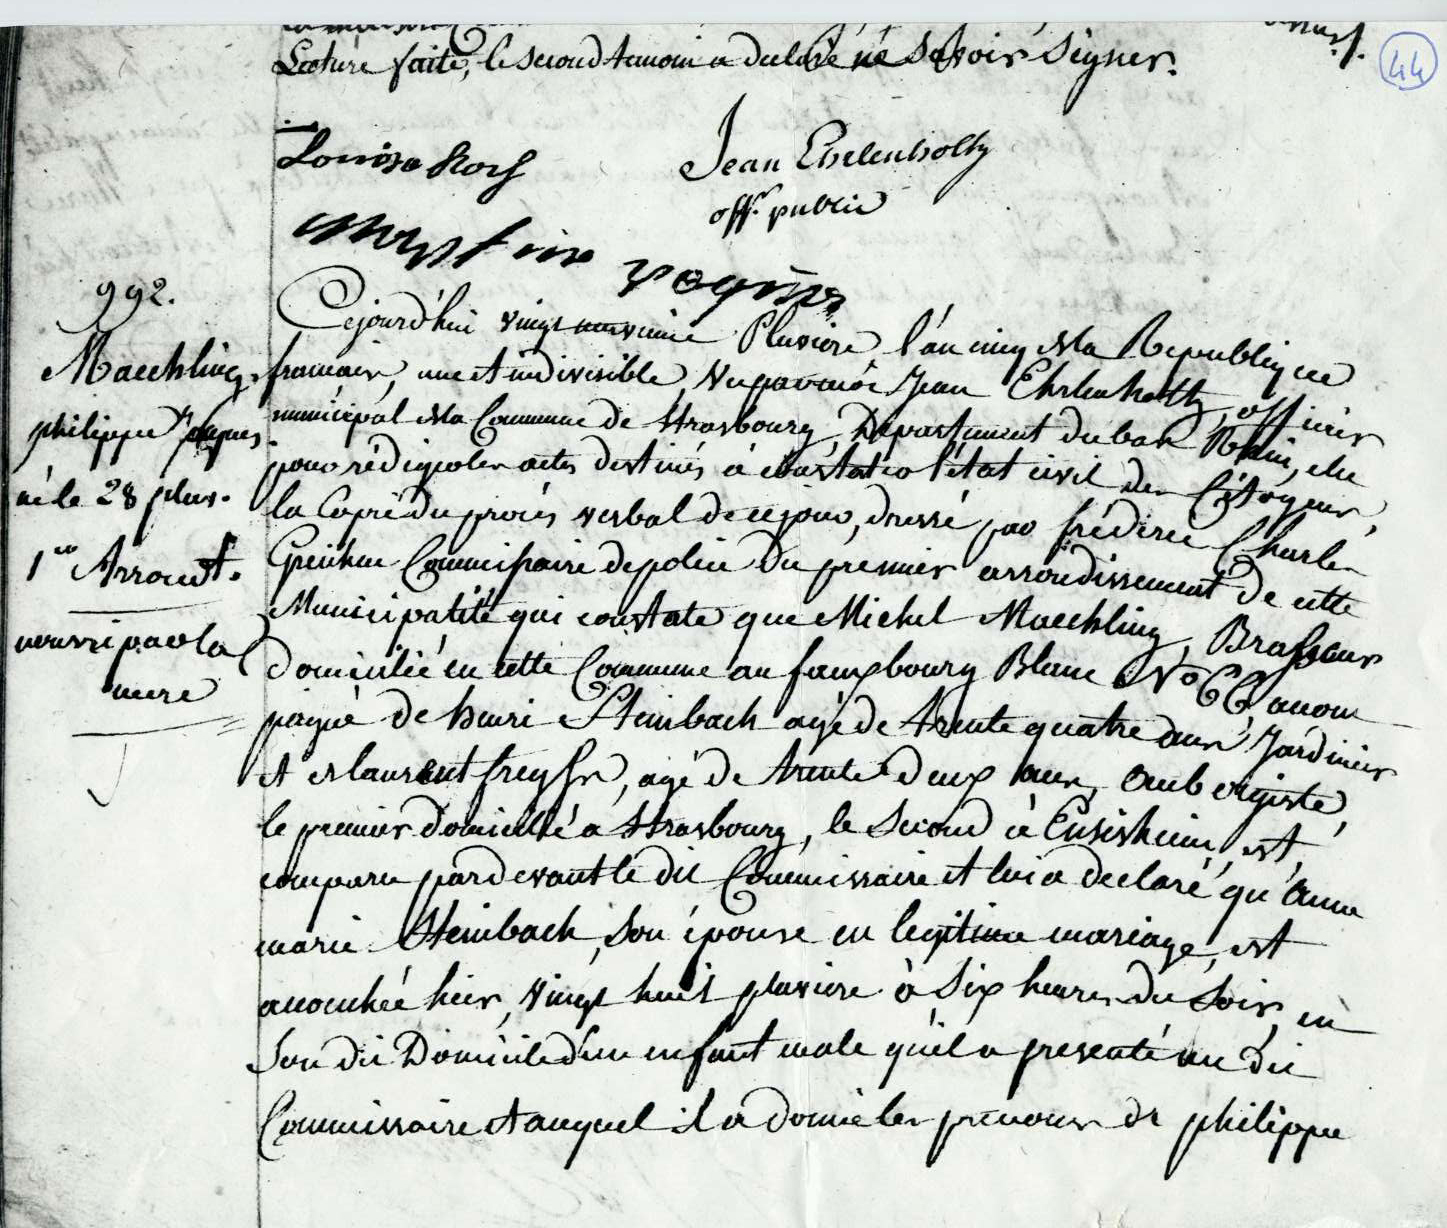 Lecture faite, le second temoin a declaré ne savoir signer.
44
Jean Ehrlenholtz
off. public
992.
Maechling,
philippe Jaques
né le 28 pluv.
1er Arrondt.
nourri par la
mere
Cejourd'hui vingt neuvieme Pluviose, l'an cinq de la Republique
francaise, une et indivisible, vu par moi Jean Ehrlenholtz, officier
municipal de la Commune de Strasbourg, Departement du bas Rhin, elu
pour rédiger les actes destinés à constater l'état civil des Citoyens,
la Copie du procés verbal de ce jour, dressé par frédéric Charles
Commissaire de police du premier arrondissement de cette
Municipalité qui constate que Michel Maechling, Brasseur
domicilié en cette Commune au fauxbourg Blanc No 66, accom
pagné de henri Steinbach agé de trente quatre ans, Jardinier
et de laurent freyss, agé de trente deux ans, aubergiste,
le premier domicilié à Strasbourg, le second à Ensisheim, est
comparu pardevant le dit Commissaire et lui a declaré qu'anne
marie Steinbach, son épouse en legitime mariage, est
accouchée hier, vingt huit pluviose à six heures du soir, en
son dit Domicile d'un enfant male qu'il a presenté au dit
Commissaire et auquel il a donné les prenoms de philippe